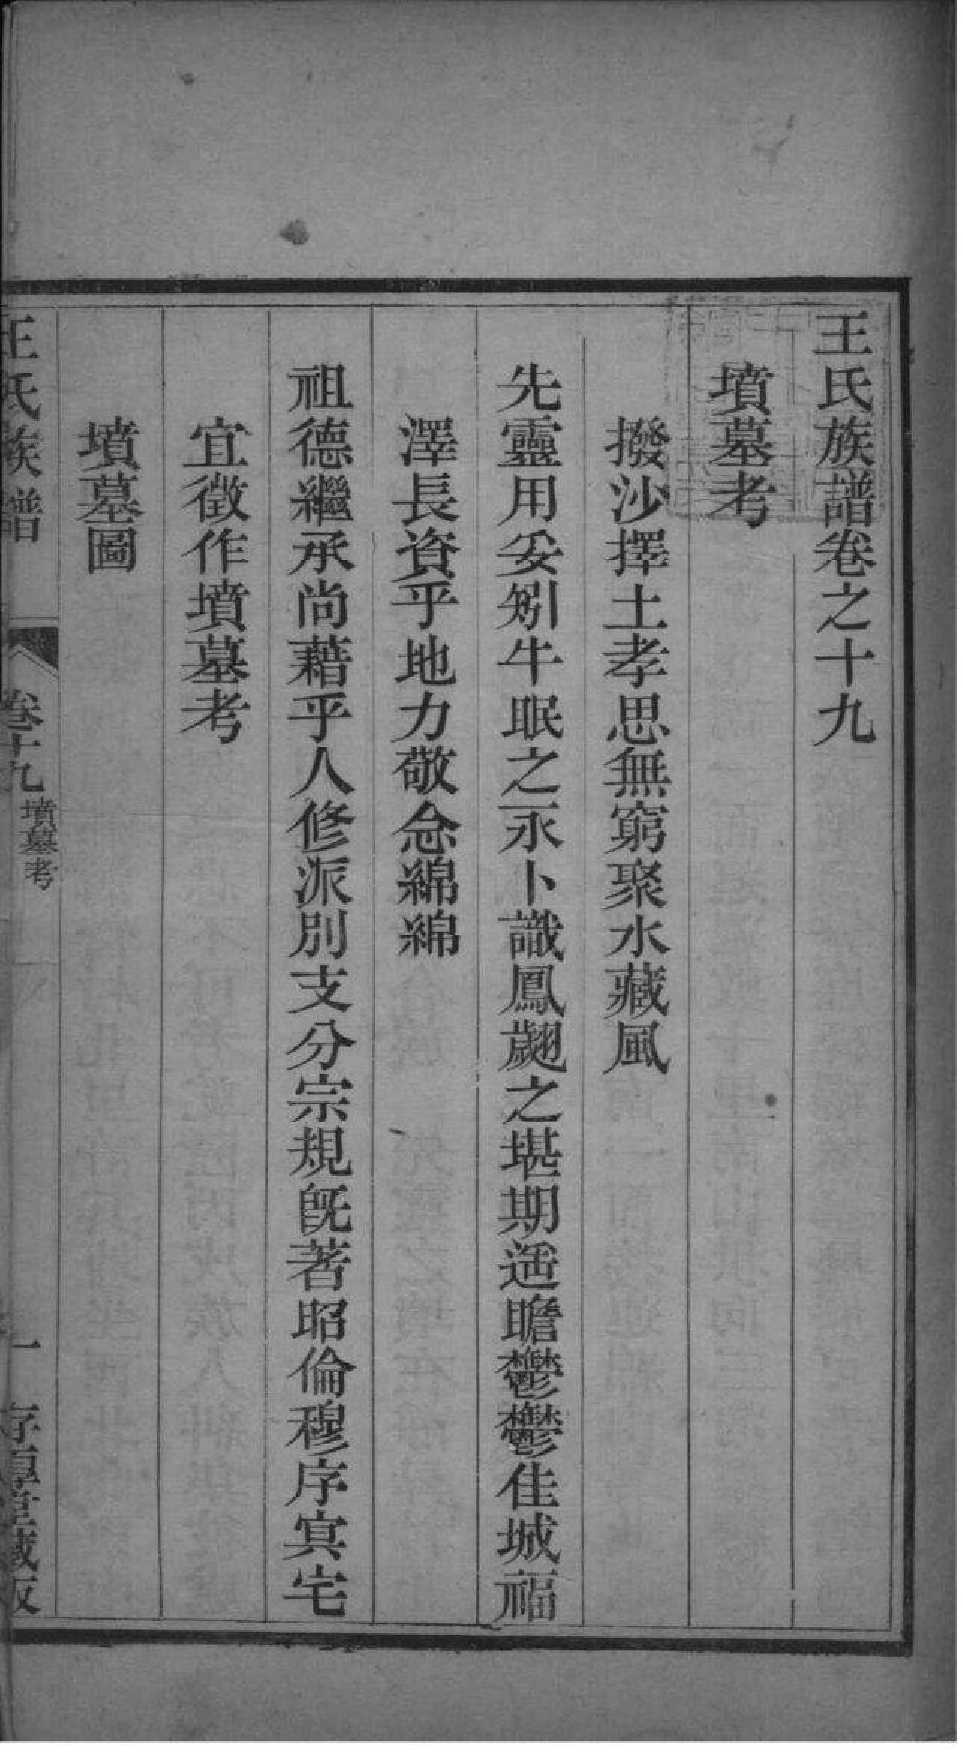 王氏族譜卷之十九
墳墓考
撥沙擇土孝思無窮聚水藏風
先靈用妥矧牛眠之永卜識鳳翽之堪期遥瞻鬱鬱佳城福
澤長資乎地力敬念綿綿
祖德繼承尚藉乎人修派別支分宗規旣著昭倫穆序窀宅
宜徵作墳墓考
墳墓圖
王氏族譜
卷十九
墳墓考
一
存厚堂藏板